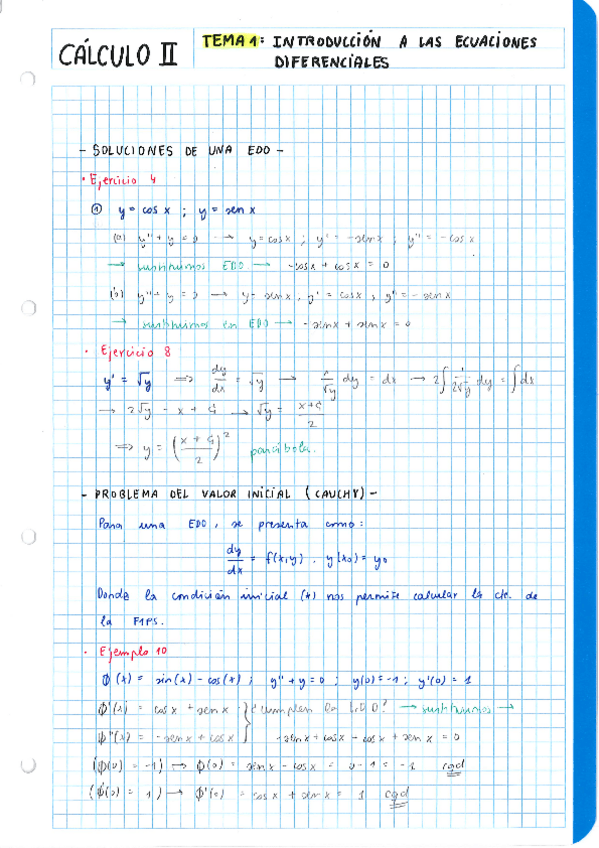 CÁLCULO II
TEMA 1: INTRODUCCIÓN A LAS ECUACIONES
DIFERENCIALES
- SOLUCIONES DE UNA EDO -
· Ejercicio 4
① y = cos x ; y = sen x
(a) y'' + y = 0 → y = cos x ; y' = -sen x ; y'' = -cos x
→ sustituimos EDO → -cos x + cos x = 0
(b) y'' + y = 0 → y = sen x, y' = cos x ; y'' = -sen x
→ sustituimos en EDO → -sen x + sen x = 0
· Ejercicio 8
y' = √y ⇒ dy/dx = √y → 1/√y dy = dx → 2∫ 1/2√y dy = ∫dx
→ 2√y = x + C₁ → √y = x+C₁/2
⇒ y = (x + C₁/2)² parábola.
- PROBLEMA DEL VALOR INICIAL (CAUCHY) -
Para una EDO, se presenta como:
dy/dx = f(x,y) , y(x₀) = y₀
Donde la condición inicial (*) nos permite calcular la cte. de
la F1PS.
· Ejemplo 10
ϕ(x) = sin(x) - cos(x) ; y'' + y = 0 ; y(0) = -1 ; y'(0) = 1
ϕ'(x) = cos x + sen x } ¿cumplen la EDO? → sustituimos →
ϕ''(x) = -sen x + cos x -sen x + cos x - cos x + sen x = 0
(ϕ(0) = -1) → ϕ(0) = sen x - cos x = 0 - 1 = -1 cqd
(ϕ'(0) = 1) → ϕ'(0) = cos x + sen x = 1 cqd